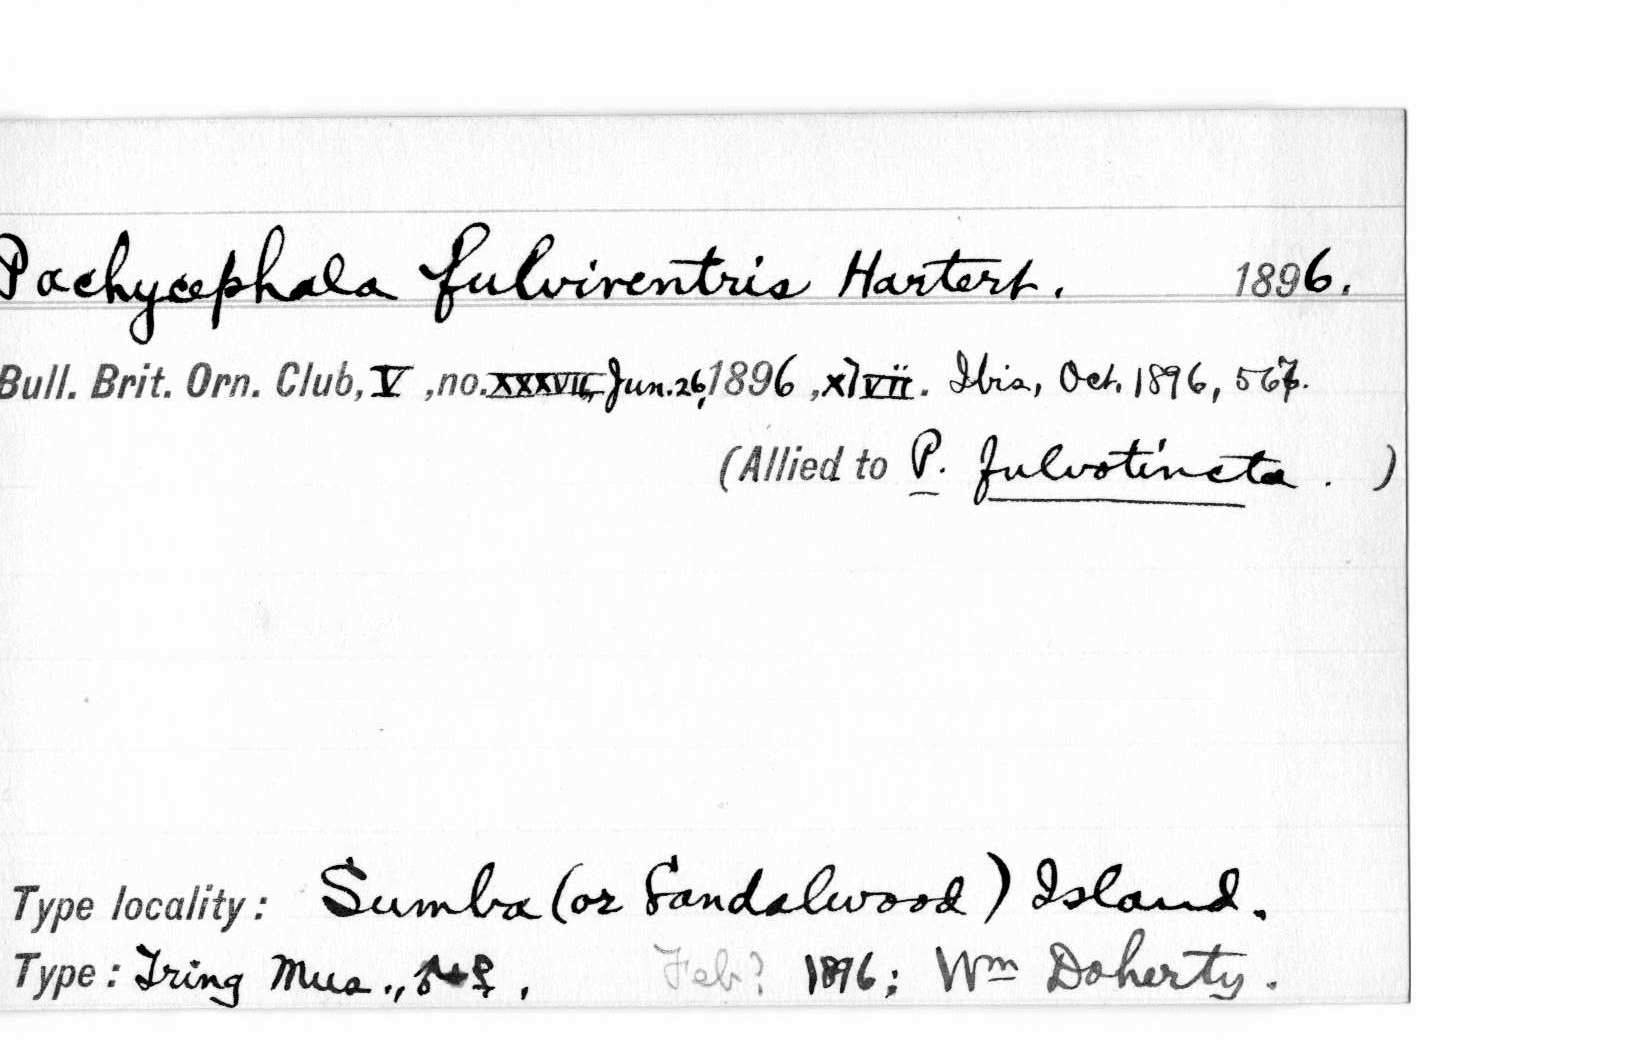 Pachycephala fulviventris Hartert. 1896.
Bull. Brit. Orn. Club, V, no. XXXVII, Jun. 26, 1896, xlvii. Ibis, Oct. 1896, 567.
(Allied to P. fulvotincta. )
Type locality: Sumba (or Sandalwood) Island.
Type: Tring Mus., ♂+♀, Feb? 1896; Wm Doherty.